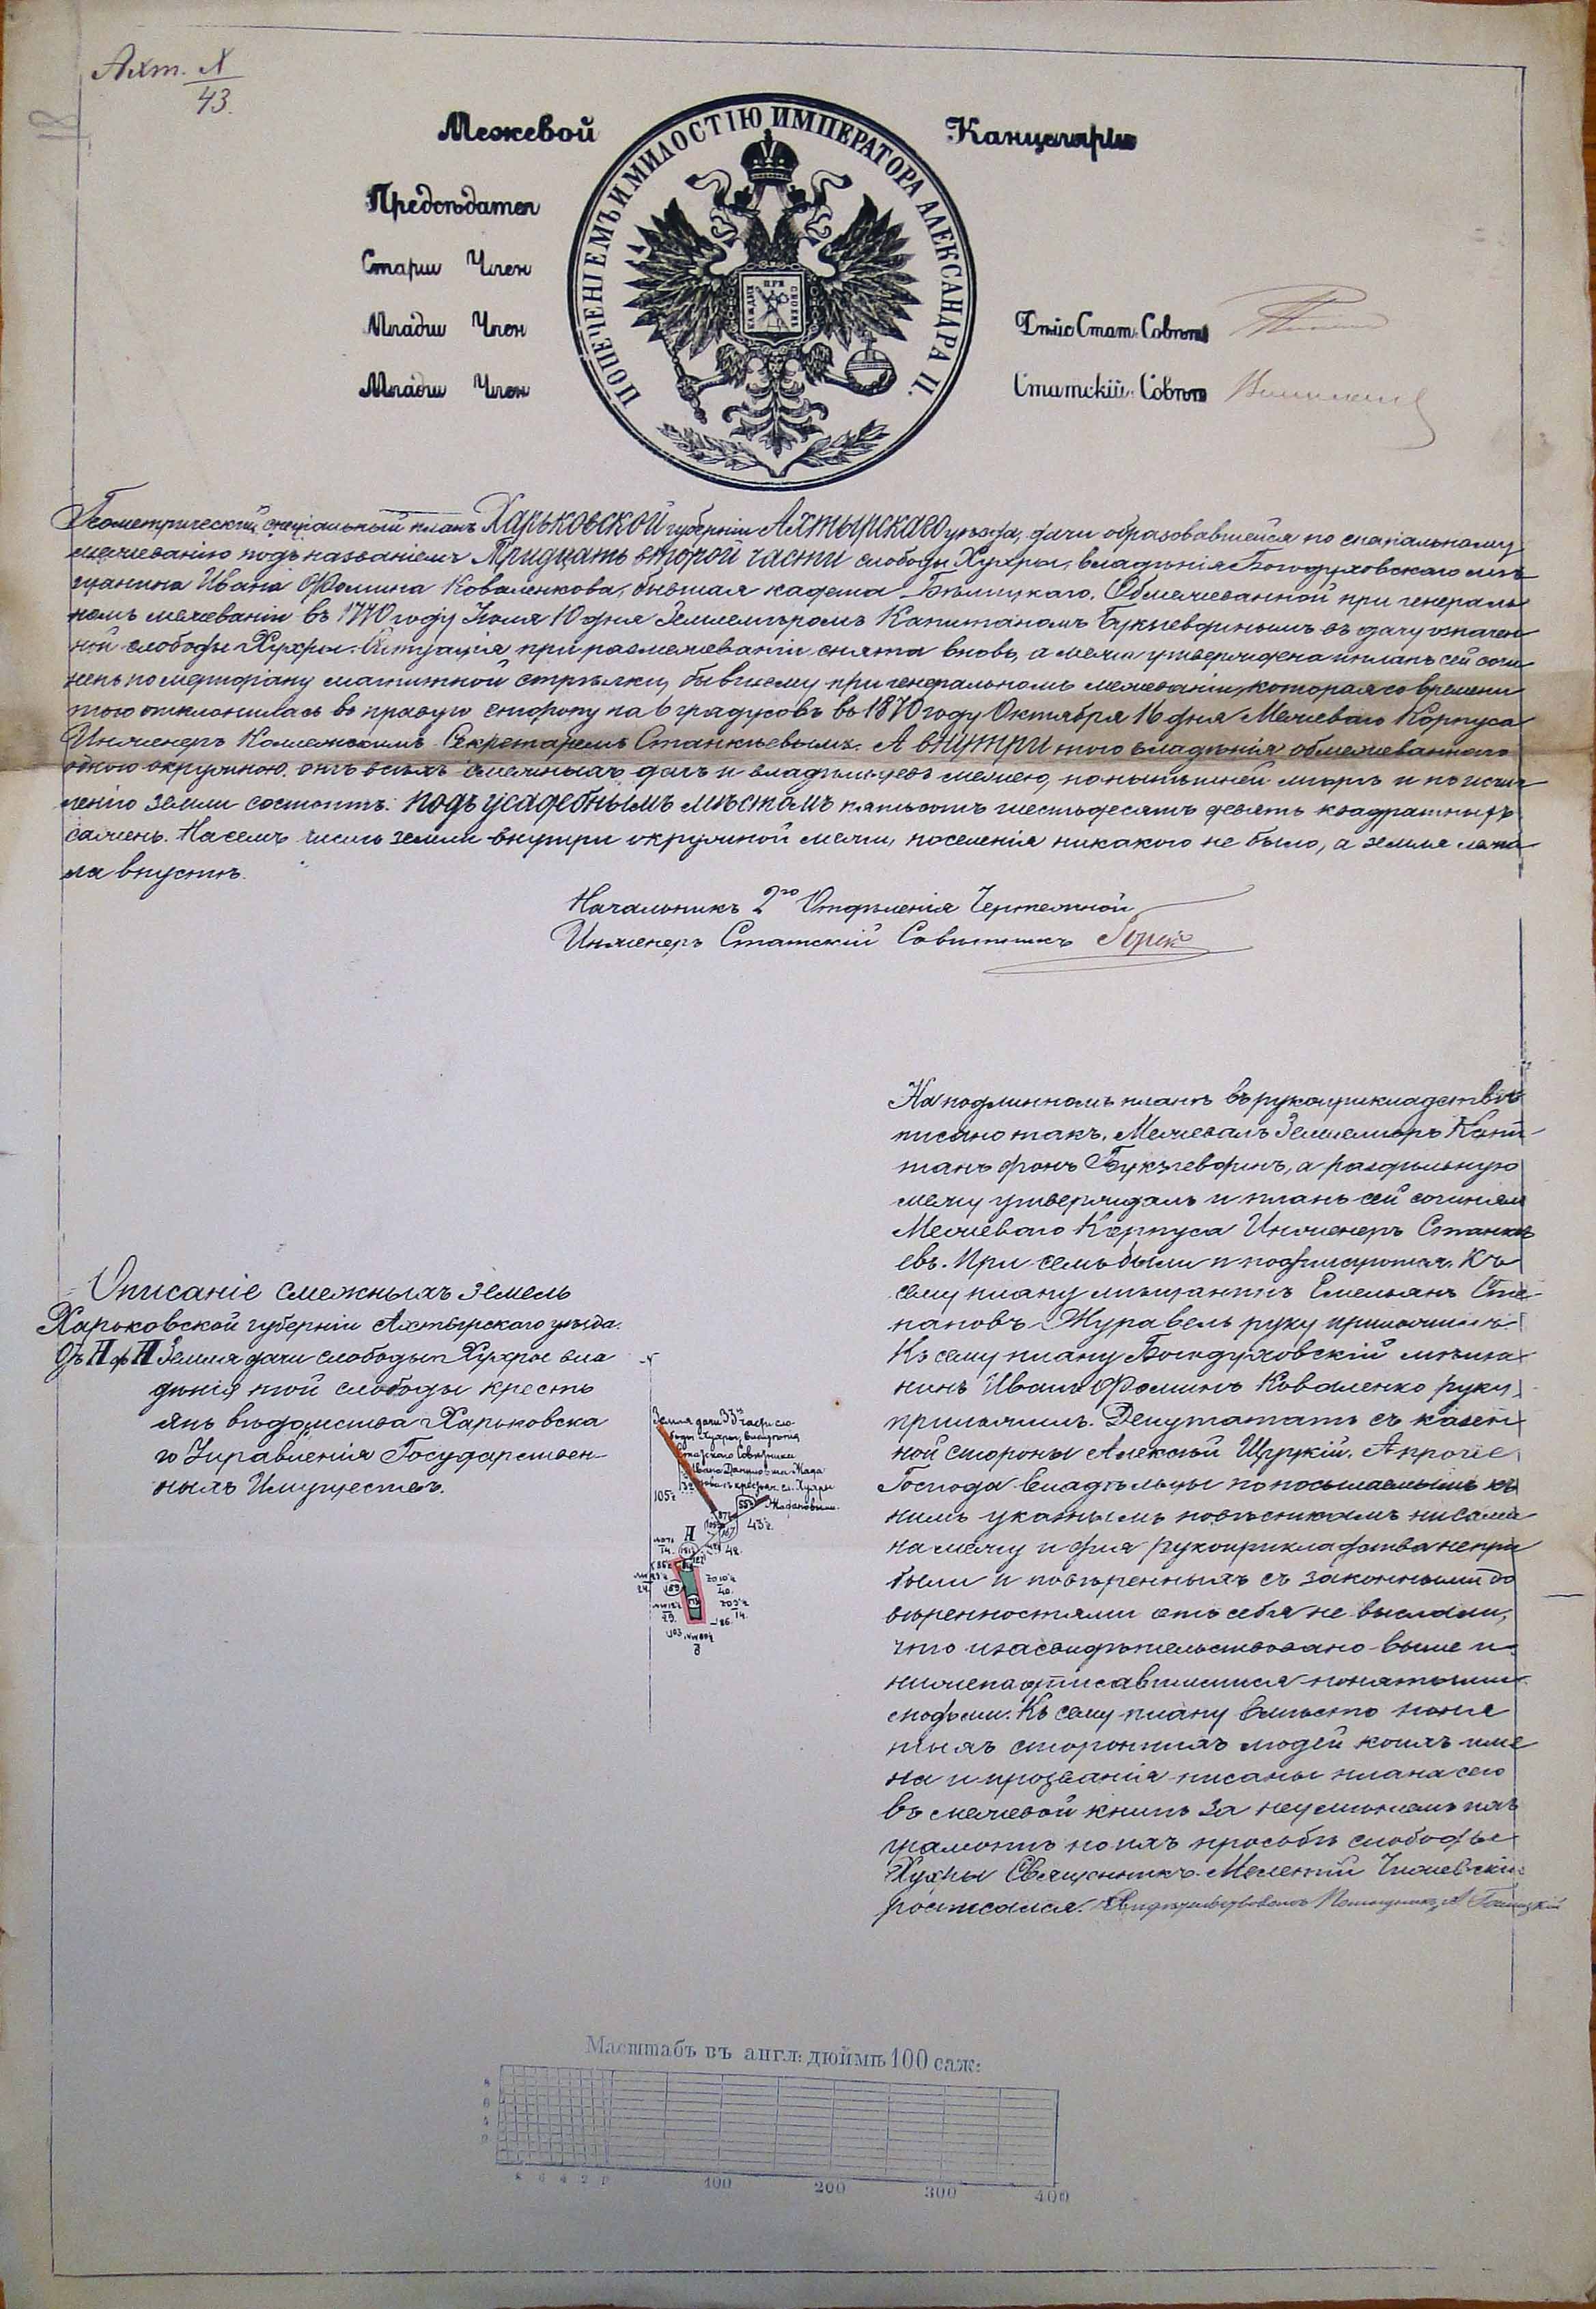 Ахт. X
43.
18
Межевой Канцеляріи
ПОПЕЧЕНІЕМЪ И МИЛОСТІЮ ИМПЕРАТОРА АЛЕКСАНДРА II.
КАЖДЫЙ ПРИ СВОЕМЪ
Предсѣдател
Старш Член
Младш Член
Дѣйс Стат. Совѣт
Младш Член
Статскій Совѣт
Геометрическій спеціальный планъ Харьковской губерніи Ахтырскаго уѣзда, дачи образовавшейся по спеціальному
межеванію подъ названіемъ Тридцать второй части слободы Хухры, владѣнія Богодуховскаго мѣ
щанина Ивана Фомина Коваленкова, бывшая кадета Бѣлицкаго. Обмежеванной при генераль
номъ межеваніи въ 1770 году Іюля 10 дня Землемѣромъ Капитаномъ Букъгевфиннымъ въ дачу означен
ной слободы Хухры. Ситуація при размежеваніи снята вновь, а межа утверждена и планъ сей сочи
ненъ по меридіану магнитной стрѣлки, бывшему при генеральномъ межеваніи, которая со времени
того отклонилась въ правую сторону на 6 градусовъ въ 1870 году Октября 16 дня Межеваго Корпуса
Инженеръ Коллежскимъ Секретаремъ Станкѣевымъ. А внутри того владѣнія обмежеваннаго
одною окружною отъ всѣхъ смежныхъ дачъ и владѣльцевъ межею, по нынѣшней мѣрѣ и по исчис
ленію земли состоитъ: подъ усадебнымъ мѣстомъ пятьсотъ шестьдесятъ девять квадратныхъ
сажень. На семъ числѣ земли внутри окружной межи, поселенія никакого не было, а земля лежа
ла впустѣ.
Начальникъ 2го Отдѣленія Чертежной
Инженеръ Статскій Совѣтникъ
На подлинномъ планѣ въ рукоприкладствѣ
писано такъ. Межевалъ Землемѣръ Капи-
танъ фонъ Букъгевфинъ, а раздѣльную
межу утверждалъ и планъ сей сочинялъ
Межеваго Корпуса Инженеръ Станкѣ
евъ. При семъ были и подписуются. Къ
сему плану мѣщанинъ Емельянъ Сте-
пановъ Журавель руку приложилъ.
Къ сему плану Богодуховскій мѣща
нинъ Иванъ Фоминъ Коваленко руку
приложилъ. Депутатъ съ казен
ной стороны Алексѣй Щуцкій. А прочіе
Господа владѣльцы по посылаемымъ къ
нимъ указнымъ повѣсткамъ ни сами
на межу и для рукоприкладства непри
были и повѣренныхъ съ законными до
вѣренностями отъ себя не выслали,
что и засвидѣтельствовано выше и
нижеподписавшимися понятыми
людьми. Къ сему плану вмѣсто поня
тыхъ стороннихъ людей коихъ име
на и прозванія писаны плана сего
въ межевой книгѣ за неумѣніемъ ихъ
грамотѣ по ихъ просьбѣ слободы
Хухры Священникъ Мелетій
росписался.
Описаніе смежныхъ земель
Харьковской губерніи Ахтырскаго уѣзда.
Отъ А до А Земля дачи слободы Хухры вла
дѣнія той слободы кресть
янъ вѣдомства Харьковска
го Управленія Государствен-
ныхъ Имуществъ.
Земля дачи 33й части сло-
боды Хухры, владѣнія
Совѣтника
Ивана Данилова
сл. Хухры
А
Масштабъ въ англ: дюймѣ 100 саж:
100 200 300 400